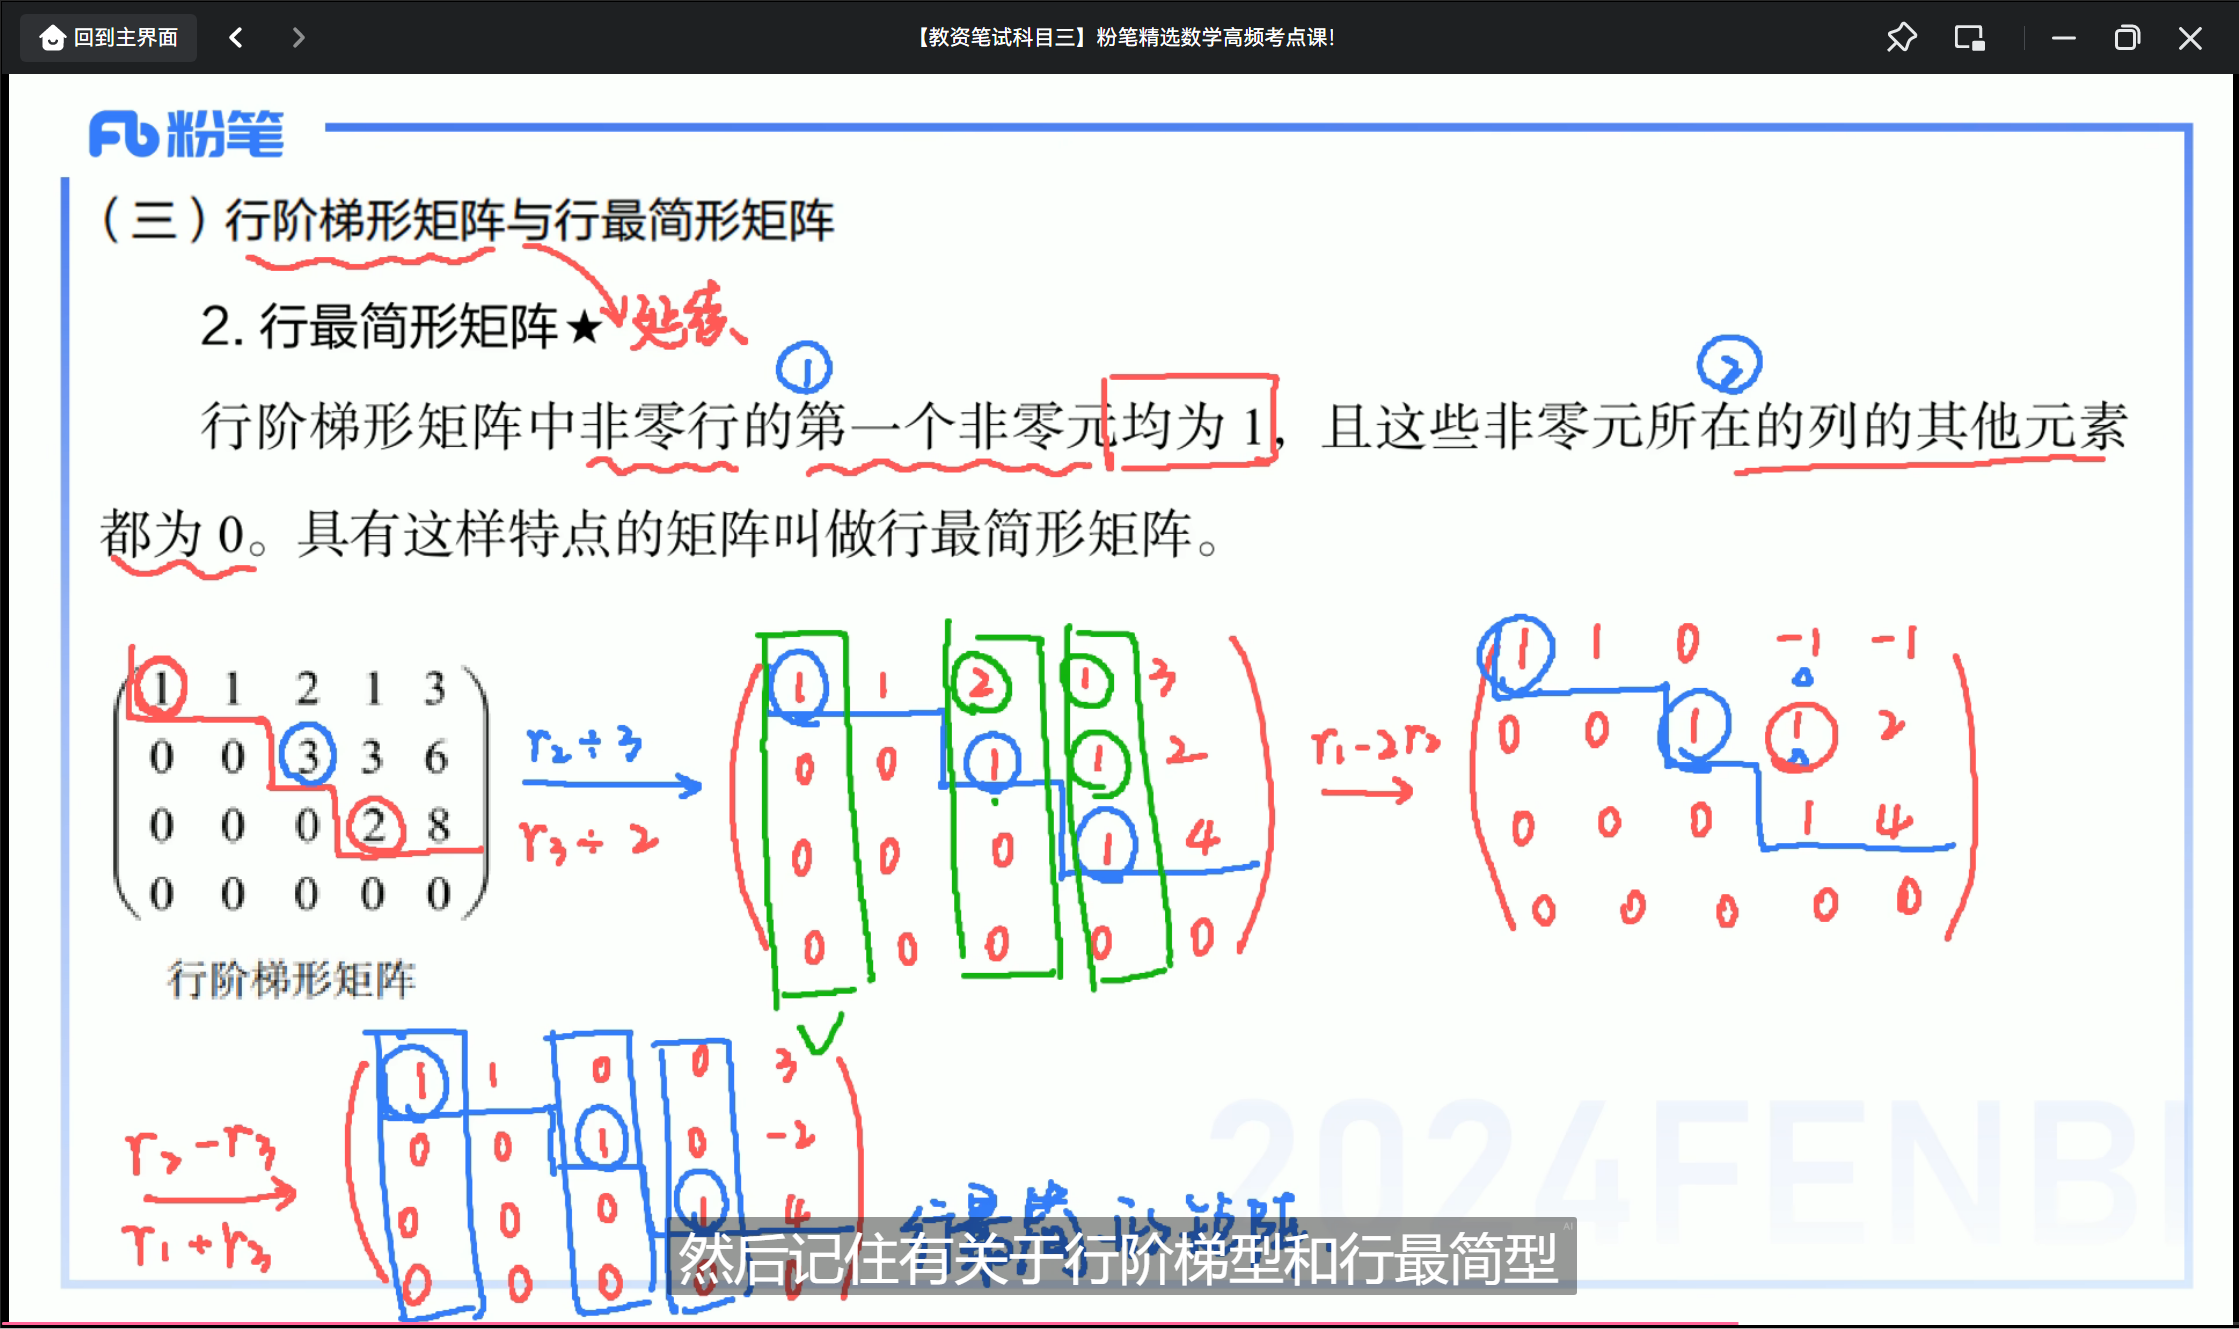 回到主界面
【教资笔试科目三】粉笔精选数学高频考点课!
Fb粉笔
(三)行阶梯形矩阵与行最简形矩阵
2. 行最简形矩阵★
① ②
行阶梯形矩阵中非零行的第一个非零元均为 1，且这些非零元所在的列的其他元素
都为 0。具有这样特点的矩阵叫做行最简形矩阵。
1 1 2 1 3
0 0 3 3 6
0 0 0 2 8
0 0 0 0 0
行阶梯形矩阵
r₂÷3
r₃÷2
1 1 2 1 3
0 0 1 1 2
0 0 0 1 4
0 0 0 0 0
r₁-2r₂
1 1 0 -1 -1
0 0 1 1 2
0 0 0 1 4
0 0 0 0 0
r₂-r₃
r₁+r₃
1 1 0 0 3
0 0 1 0 -2
0 0 0 1 4
0 0 0 0 0
2024FENBI
然后记住有关于行阶梯型和行最简型
AI